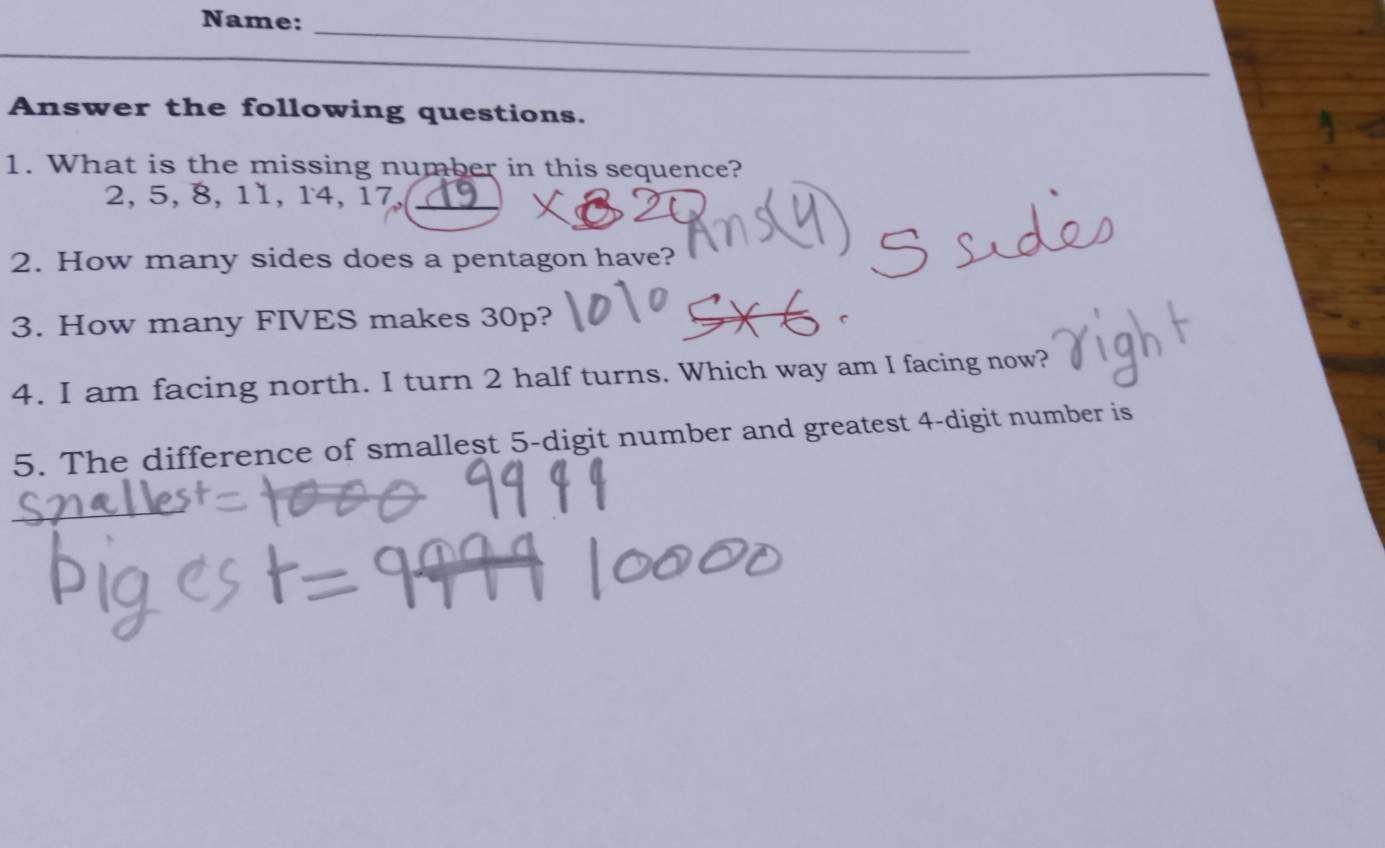 Name:
Answer the following questions.
1. What is the missing number in this sequence?
2, 5, 8, 11, 14, 17, 19 × 20
2. How many sides does a pentagon have? Ans(4) 5 sides
3. How many FIVES makes 30p? 1010 5×6.
4. I am facing north. I turn 2 half turns. Which way am I facing now? right
5. The difference of smallest 5-digit number and greatest 4-digit number is
smallest = 1000 9999
bigest = 9999 10000